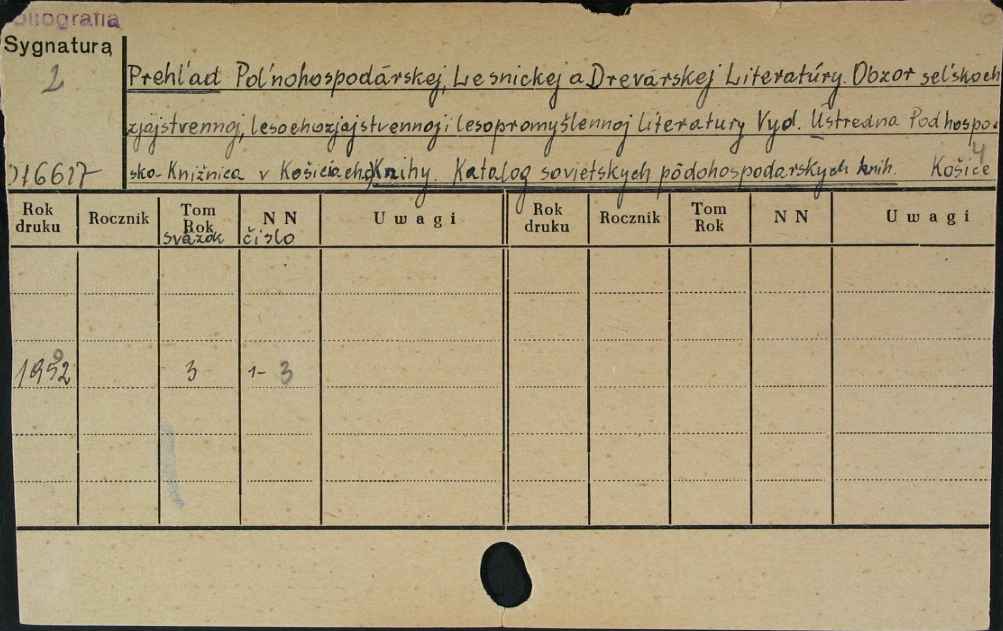 bliografia
Sygnatura
2
Prehl'ad Pol'nohospodárskej, Lesnickej a Drevárskej Literatúry. Obzor sel'skoch
zjajstvennoj, lesochozjajstvennoj i lesopromyšlennoj literatury Vyd. Ústredna Podhospo-
sko-Knižnica v Košiciach, Knihy. Katalog sovietskych pôdohospodarskych knih. Košice
4
Rok druku Rocznik Tom Rok NN Uwagi Rok druku Rocznik Tom Rok NN Uwagi
svázok číslo
1952 3 1-3